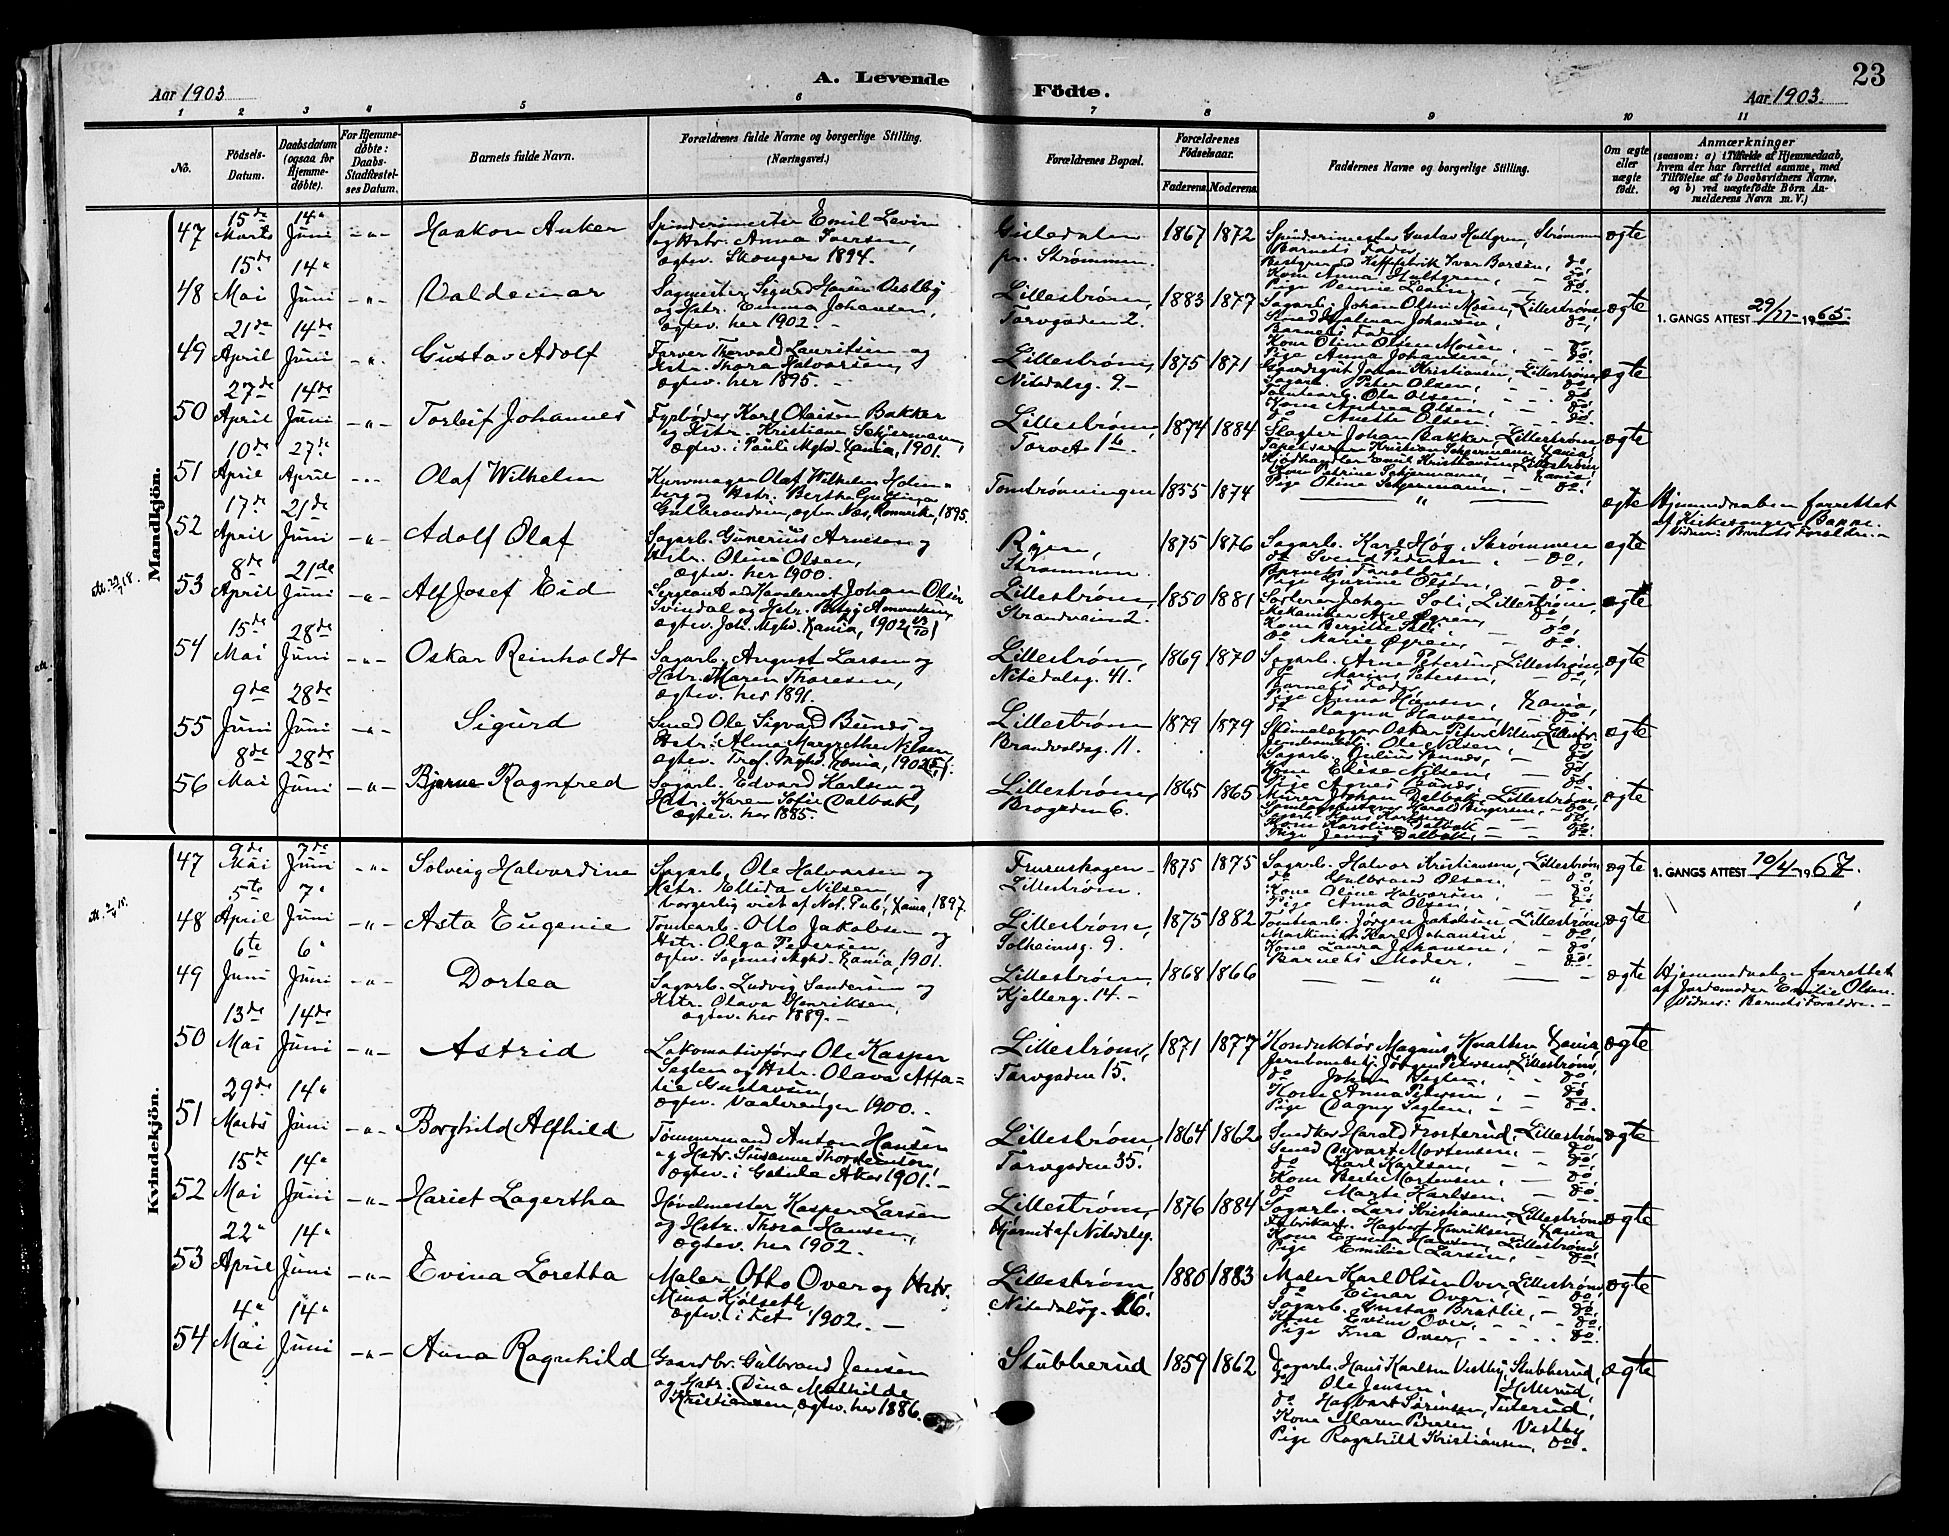 A. Levende Födte.
23
Aar 1903
Aar 1903.
1 2 3 4 5 6 7 8 9 10 11
No.
Födsels-Datum.
Daabsdatum (ogsaa for Hjemme-døbte).
For Hjemme-døbte: Daabs-Stadfæstel-ses Datum.
Barnets fulde Navn.
Forældrenes fulde Navne og borgerlige Stilling.
(Næringsvei.)
Forældrenes Bopæl.
Forældrenes Födselsaar.
Faderens. Moderens.
Faddernes Navne og borgerlige Stilling.
Om ægte eller uægte født.
Anmærkninger
(saasom: a) i Tilfælde af Hjemmedaab,
hvem der har forrettet samme, med
Tilføielse af to Daabsvidners Navne,
og b) ved uægtefødte Börn An-
melderens Navn m. V.)
Mandkjön.
47 15de Marts 14" Juni Haakon Anker
Spinderimester Emil Levin
og Hstr. Anna Iversen,
ægtev. Skonger 1894.
pr. Strømmen.
1867 1872
Spinderimester Gustav Hultgren, Strømmen
Barnets Fader,
Kone Anna Hultgren, do.
ægte
48 15de Mai 14" Juni Valdemar
Sagmester Sigurd Hansen Vestby
og Hstr. Emma Johansen,
ægtev. her 1902.
Lillestrøm,
Torvgaden 2.
1883 1877
Sagarb. Johan Olsen Mosen, Lillestrøm
Smed Hjalmar Johansen, do.
Barnets Fader,
Kone Oline Olsen Mosen, do.
Pige Anna Johansen, do.
ægte
1. GANGS ATTEST 29/11-1965.
49 21de April 14de Juni Gustav Adolf
Farver Thorvald Lauritsen og
Hstr. Thora Halvorsen,
ægtev. her 1895.
Lillestrøm,
Nitedalsg. 9.
1875 1871
Johan Kristiansen, Lillestrøm,
Sagarb. Peter Olsen,
Tomtearb. Ole Olsen, do.
Kone Andrea Olsen, do.
do Anette Olsen, do.
ægte
50 27de April 14de Juni Torleif Johannes
Fyrbøder Karl Olaisen Bakker
og Hstr. Kristiane Schjermann,
ægtev. i Pauli Mghd. Xania, 1901.
Lillestrøm,
Torvet 1b.
1874 1884
Slagter Johan Bakker, Lillestrøm
Kristian Schjermann, Xania,
Emil Kristiansen, Lillestrøm
Kone Petrine Schjermann, Xania,
Pige Oline Schjermann, do.
ægte
51 10de April 27de April Olaf Wilhelm
Kurvmager Olaf Wilhelm Holm-
berg og Hstr. Berthe Gustina
Gulbrandsen, ægtev. Næs, Romerike, 1895.
Tomtrøningen
1855 1874
ægte
Hjemmedaaben forrettet
af Kirkesanger Bakke.
Vidner: Barnets Forældre.
52 17de April 21de Juni Adolf Olaf
Sagarb. Gunerius Arnesen og
Hstr. Oline Olsen,
ægtev. her 1900.
Strømmen.
1875 1876
Sagarb. Karl Høg, Strømmen
do Svend Pedersen, do.
Barnets Forældre,
Pige Gurine Olsen, do.
ægte
53 8de April 21de Juni Alf Josef Eid
Sergeant ved Kavaleriet Johan Olsen
Svindal og Hstr. Amundsen,
ægtev. Joh. Mghd. Xania, 1902
Lillestrøm,
Strandveien 2.
1850 1881
Johan Soli, Lillestrøm,
Mekaniker Axel Øgren, do.
Kone Bergitte Soli, do.
do Marie Øgren, do.
ægte
54 15de Mai 28de Juni Oskar Reinholdt
Sagarb. August Larsen og
Hstr. Maren Thoresen,
ægtev. her 1891.
Lillestrøm,
Nitedalsg. 41.
1869 1870
Sagarb. Arne Petersen, Lillestrøm,
do Marius Petersen, do.
Barnets Fader,
Pige Anna Hansen, Xania,
do Ragna Hansen, do.
ægte
55 9de Juni 28de Juni Sigurd
Smed Ole Sigvard Bunæs og
Hstr. Alma Margrethe Nilsen,
ægtev. Trof. Mghd. Xania, 1902
Lillestrøm
Brandvaldsg. 11.
1879 1879
Skinnelægger Oskar Peter Nilsen, Lillestr.
Jernbanebetj. Ole Nilsen, do.
Sagarb. Julius Bunæs, do.
Kone Elise Nilsen, do.
Pige Agnes Bunæs, do.
ægte
56 8de Mai 28de Juni Bjarne Ragnfred
Sagarb. Edvard Karlsen og
Hstr. Karen Sofie Dalbak,
ægtev. her 1885.
Lillestrøm,
Brogaden 6.
1865 1865
Murer Johan Dalbak, Lillestrøm,
Sagarb. Hans Karlsen, do.
Kone Karoline Dalbak, do.
Pige Jenny Dalbak, do.
ægte
Kvindekjön.
47 9de Mai 7de Juni Solveig Halvardine
Sagarb. Ole Halvorsen og
Hstr. Ellida Nilsen,
borgerlig viet af Not. Pub., Xania, 1897.
Furuskogen
Lillestrøm.
1875 1875
Sagarb. Halvor Kristiansen, Lillestrøm
do Gulbrand Olsen, do.
Kone Oline Halvorsen, do.
Pige Anna Olsen, do.
ægte
1. GANGS ATTEST 10/4-1967.
48 5te April 7" Juni Asta Eugenie
Tomtearb. Otto Jakobsen og
Hstr. Olga Pedersen,
ægtev. Sagenes Mghd. Xania, 1901.
Lillestrøm,
Solheimsg. 9.
1875 1882
Tomtearb. Jørgen Jakobsen, Lillestrøm
Maskinist Karl Johansen, do.
Kone Laura Johansen, do.
Barnets Moder, do.
ægte
49 6te Juni 6" Juni Dortea
Sagarb. Ludvig Sandersen og
Hstr. Olava Henriksen,
ægtev. her 1889.
Lillestrøm,
Kjellerg. 14.
1868 1866
ægte
Hjemmedaaben forrettet
af Jordemoder Emilie Olsen.
Vidner: Barnets Forældre.
50 13de Mai 14de Juni Astrid
Lokomotivfører Ole Kasper
Saglen og Hstr. Olava Atta-
lie Gustavsen,
ægtev. Vaalerengen 1900.
Lillestrøm,
Torvgaden 15.
1871 1877
Konduktør Magnus Knatten, Xania,
Jernbanebetj. Jørgen Petersen, Lillestrøm,
do Johan Saglen, do.
Kone Anna Petersen, do.
Pige Dagny Saglen, do.
ægte
51 29de Marts 14" Juni Borghild Alfhild
Tømmermand Anton Hansen
og Hstr. Susanne Thorstensen,
ægtev. i Gamle Aker 1901.
Lillestrøm,
Torvgaden 35.
1864 1862
Snedker Harald Frosterud, Lillestrøm
Smed Syvart Mortensen, do.
do Karl Karlsen, do.
Kone Berte Mortensen, do.
do Marte Karlsen, do.
ægte
52 15de Mai 14" Juni Hariet Lagertha
Høvelmester Kasper Larsen
og Hstr. Thora Hansen,
ægtev. her 1902.
Lillestrøm,
Hjørnet af Nitedalsg.
1876 1884
Sagarb. Lars Kristiansen, Lillestrøm
Fabrikarb. Hagbart Henriksen, Xania
Kone Emma Hansen, Lillestrøm,
Pige Emilie Larsen, do.
ægte
53 22" April 14" Juni Evina Loretta
Maler Otto Over og Hstr.
Mina Kjølseth,
ægtev. i Fet 1902.
Lillestrøm
Nitedalsg. 26.
1880 1883
Maler Karl Olsen Over, Lillestrøm,
do Einar Over, do.
Sagarb. Gustav Bratlie, do.
Kone Evine Over, do.
Pige Over, do.
ægte
54 4" Mai 14" Juni Anna Ragnhild
Gaardbr. Gulbrand Jensen
og Hstr. Dina Mathilde
Kristiansen, ægtev. her 1886.
Stubberud
1859 1862
Sagarb. Hans Karlsen Vestby, Stubberud,
do Ole Jensen, Hellerud,
do Hagbart Sørensen, Tuterud,
Kone Maren Pedersen, Vestby
Pige Ragnhild Kristiansen, do.
ægte